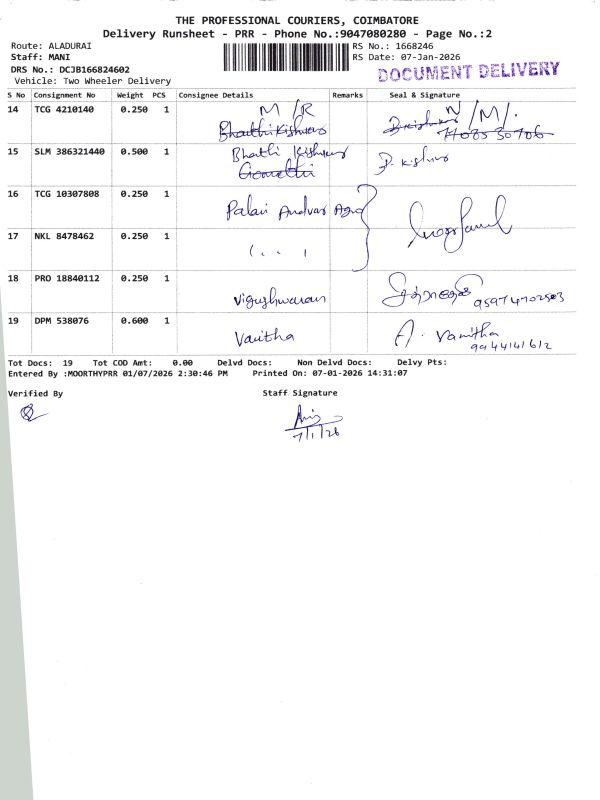 THE PROFESSIONAL COURIERS, COIMBATORE
Delivery Runsheet - PRR - Phone No.:9047080280 - Page No.:2
Route: ALADURAI RS No.: 1668246
Staff: MANI RS Date: 07-Jan-2026
DRS No.: DCJB166824602 DOCUMENT DELIVERY
Vehicle: Two Wheeler Delivery
S No Consignment No Weight PCS Consignee Details Remarks Seal & Signature
14 TCG 4210140 0.250 1 M/R N/M/.
Bhaithi Kishwar D. Kishwar
15 SLM 386321440 0.500 1 Bhaithi Kishwar D. Kishwar
Gomathi
16 TCG 10307808 0.250 1 Palani Andvar Agro
17 NKL 8478462 0.250 1
18 PRO 18840112 0.250 1 Vigushwaran
19 DPM 538076 0.600 1 Vanitha A. Vanitha
9944141612
Tot Docs: 19 Tot COD Amt: 0.00 Delvd Docs: Non Delvd Docs: Delvy Pts:
Entered By :MOORTHYPRR 01/07/2026 2:30:46 PM Printed On: 07-01-2026 14:31:07
Verified By Staff Signature
7/1/26